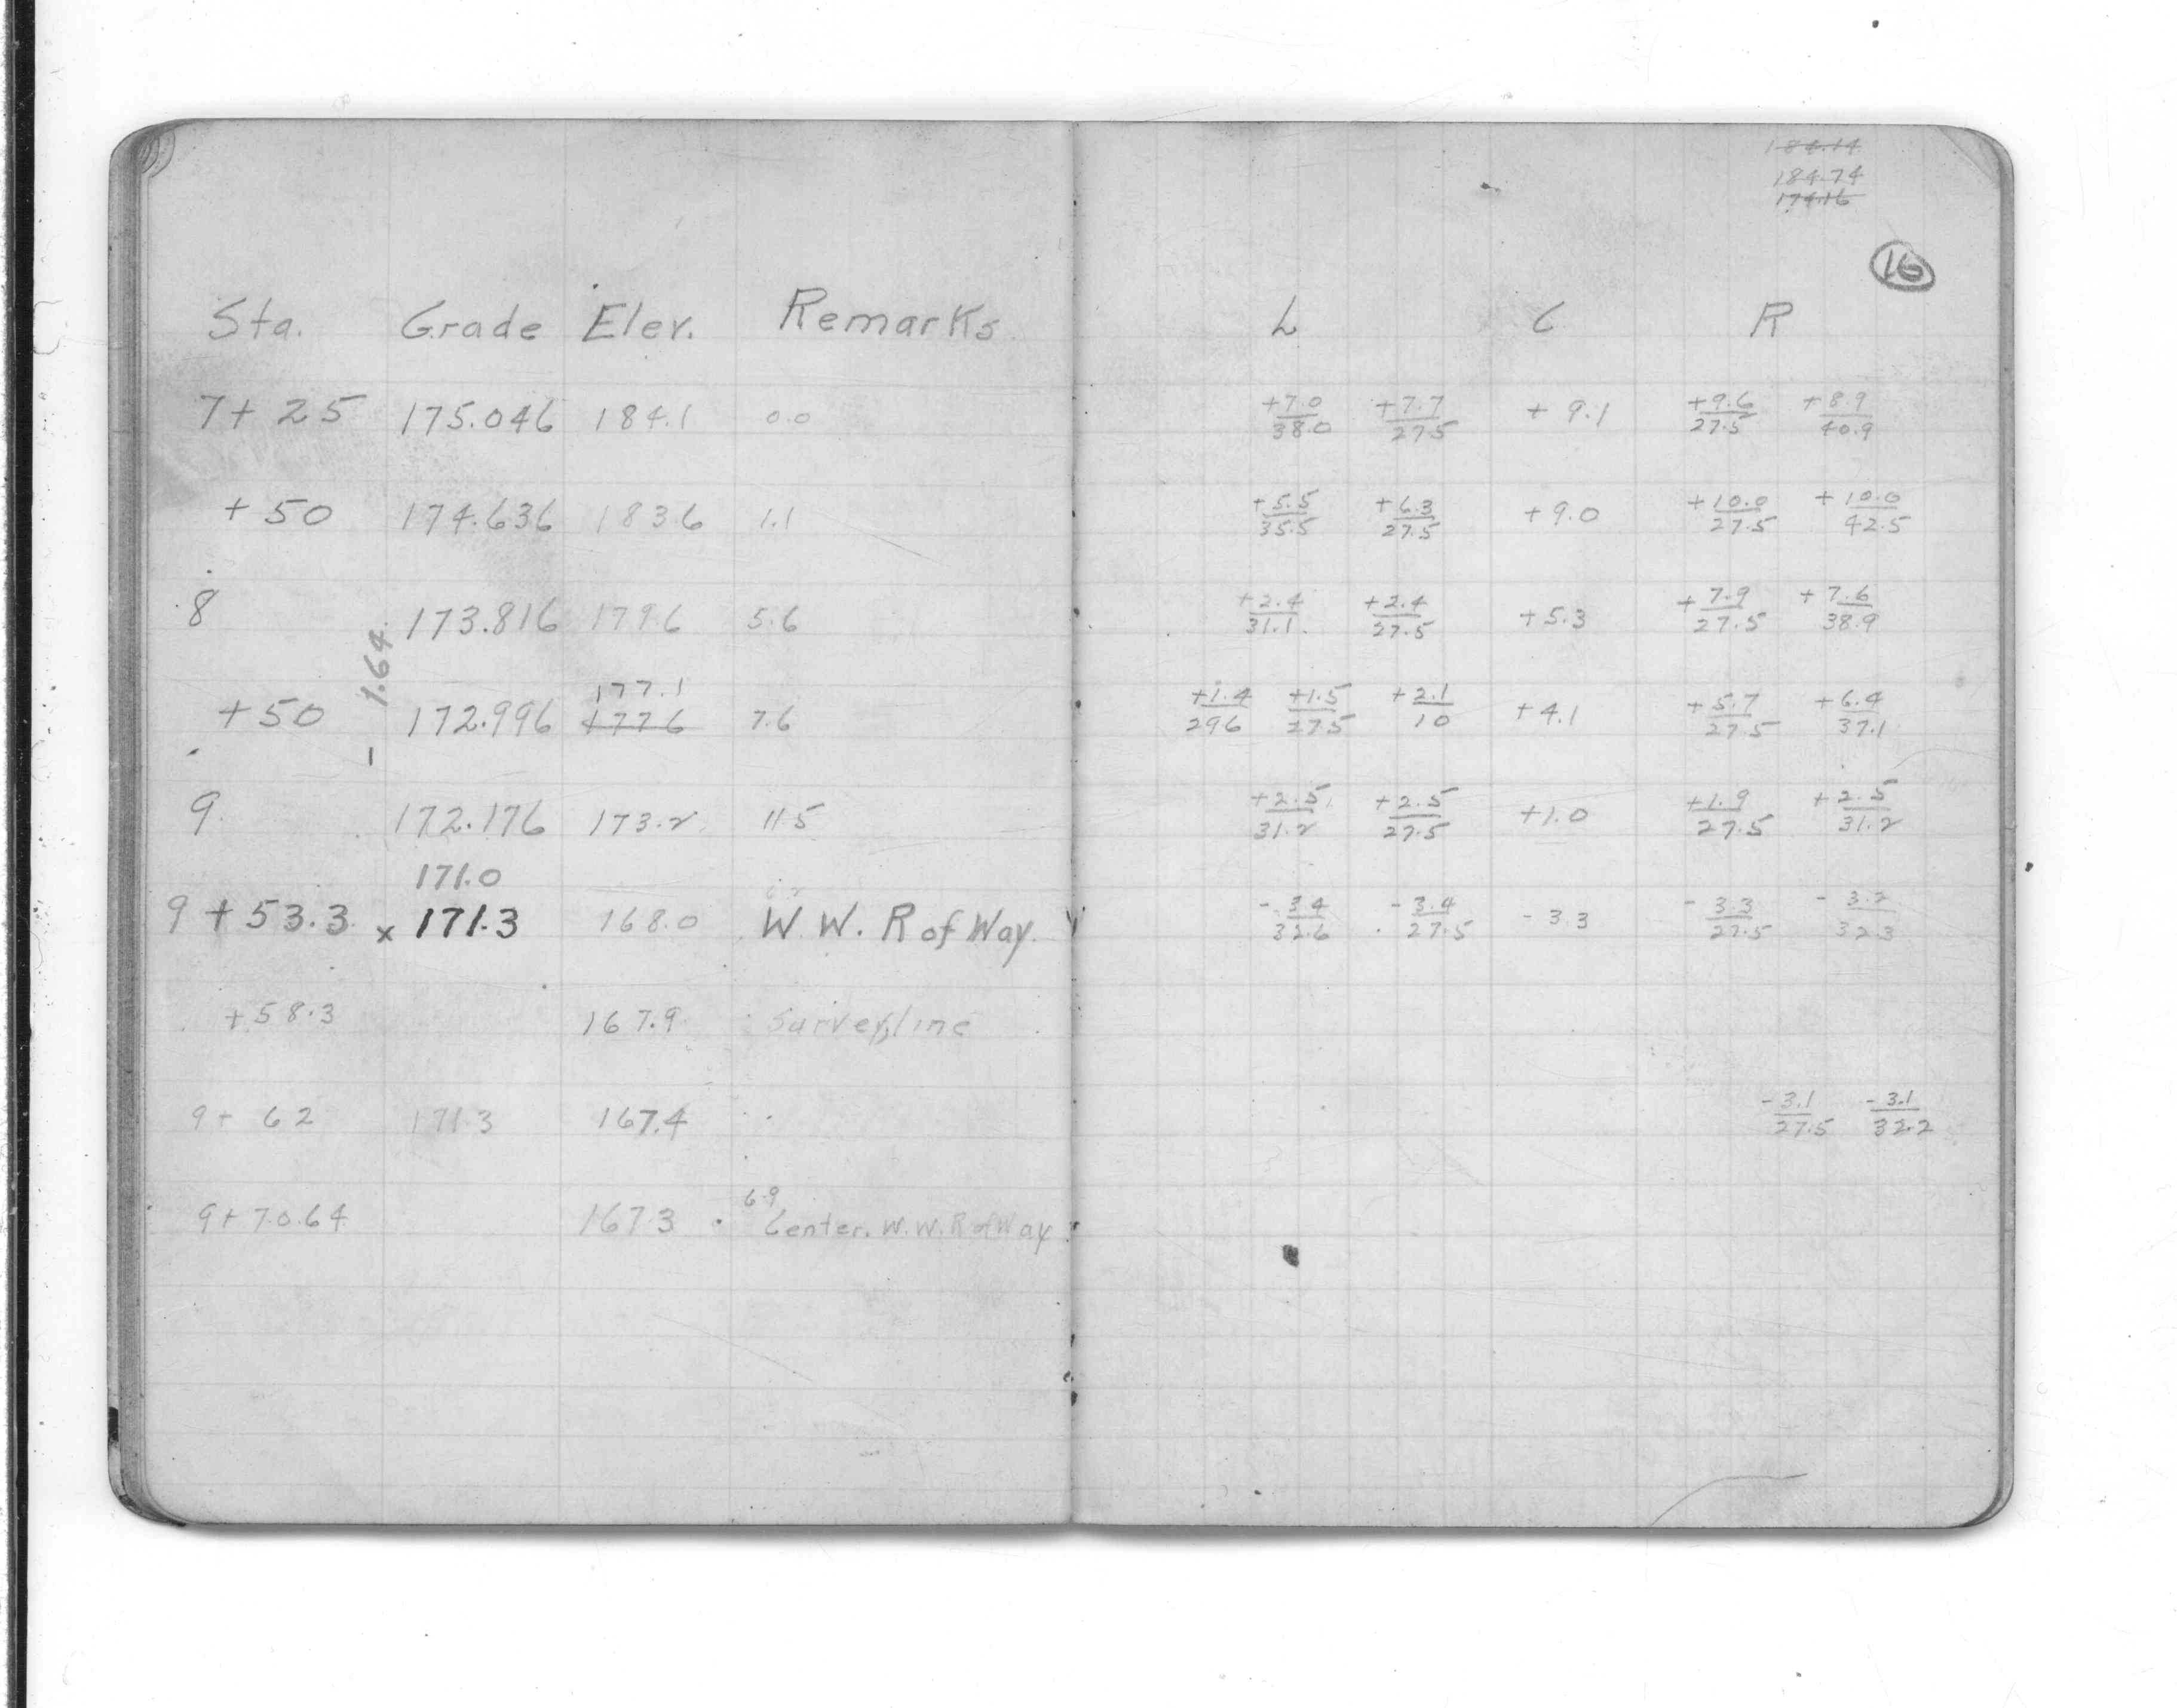 184.14
184.74
174.16
16
Sta. Grade Elev. Remarks L C R
7+25 175.046 184.1 0.0 +7.0/38.0 +7.7/27.5 +9.1 +9.6/27.5 +8.9/40.9
+50 174.636 183.6 1.1 +5.5/35.5 +6.3/27.5 +9.0 +10.0/27.5 +10.0/42.5
8 173.816 179.6 5.6 +2.4/31.1 +2.4/27.5 +5.3 +7.9/27.5 +7.6/38.9
- 1.64
177.1
+50 172.996 177.6 7.6 +1.4/29.6 +1.5/27.5 +2.1/10 +4.1 +5.7/27.5 +6.4/37.1
9 172.176 173.2 11.5 +2.5/31.2 +2.5/27.5 +1.0 +1.9/27.5 +2.5/31.2
171.0
9+53.3 x 171.3 168.0 W.W. R of Way -3.4/32.6 -3.4/27.5 -3.3 -3.3/27.5 -3.2/32.3
+58.3 167.9 Survey line
9+62 171.3 167.4 -3.1/27.5 -3.1/32.2
6.9
9+70.64 167.3 Center. W.W. R of Way